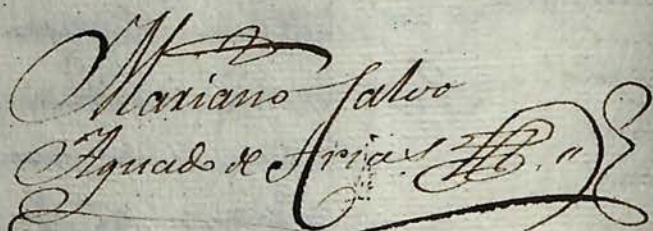 Mariano Calvo
Aguado de Arias